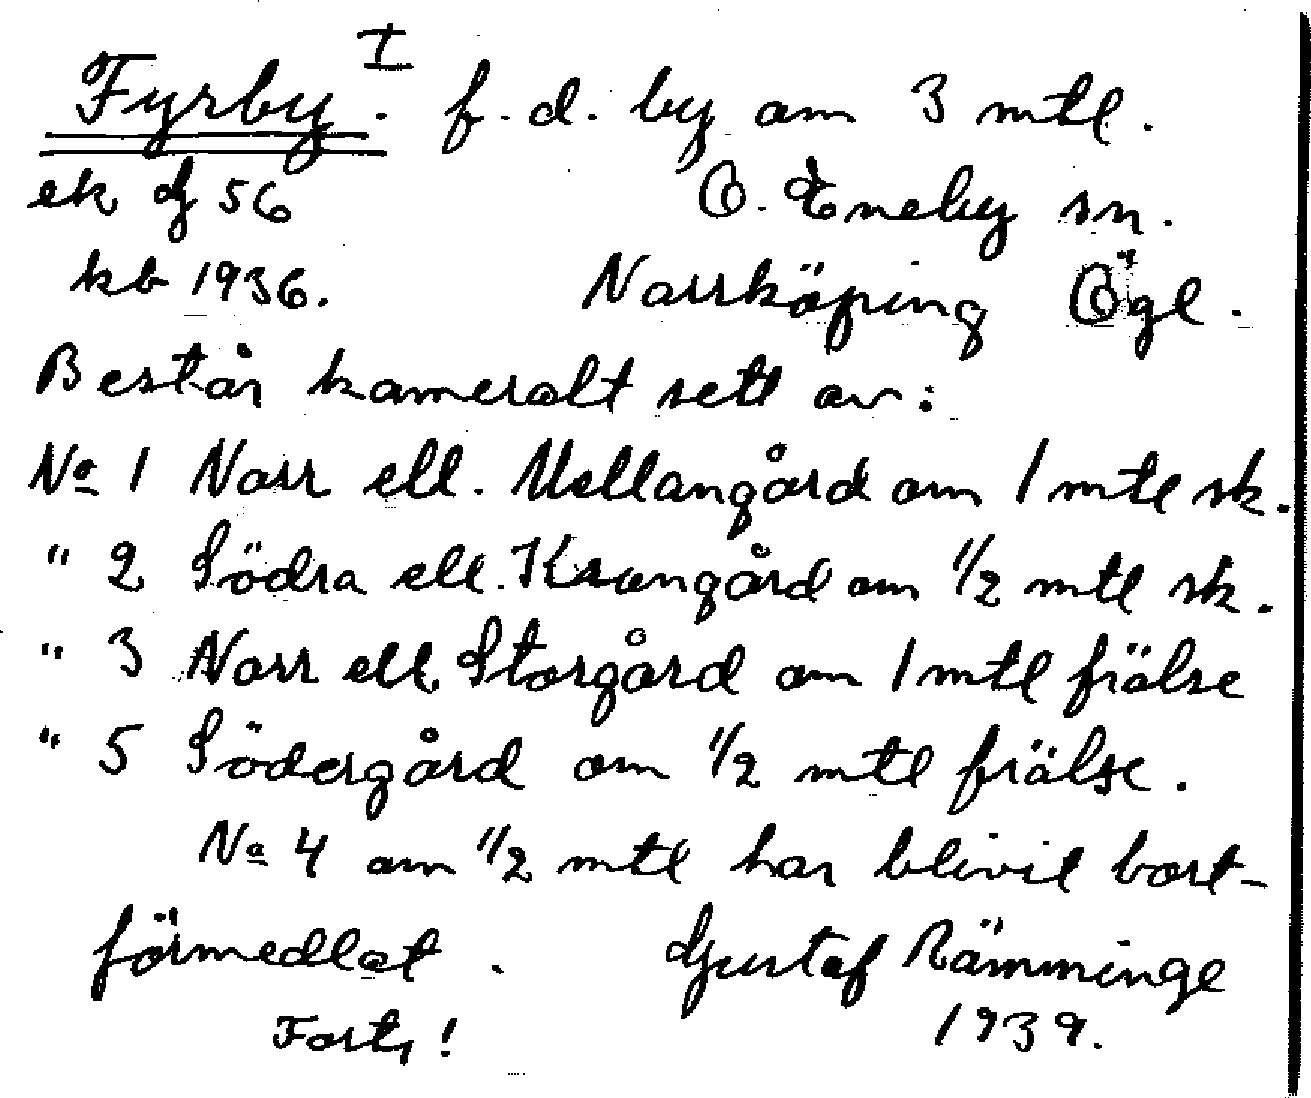 Fyrby. I f. d. by om 3 mtl.
ek df 56 Ö. Eneby sn.
kb 1936. Norrköping Ögl.
Består kameralt sett av:
No 1 Norr ell. Mellangård om 1 mtl sk.
" 2 Södra ell. Krongård om 1/2 mtl sk.
" 3 Norr ell. Storgård om 1 mtl frälse
" 5 Södergård om 1/2 mtl frälse.
No 4 om 1/2 mtl har blivit bort-
förmedlat. Gustaf Rämminge
Forts! 1939.